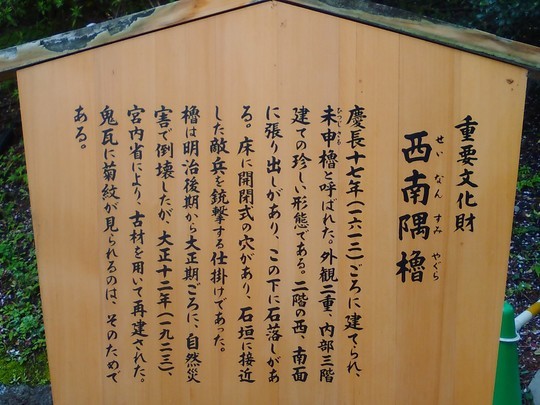 重要文化財
西南隅櫓
せい なん すみ やぐら
慶長十七年(一六一二)ごろに建てられ、
未申櫓と呼ばれた。外観二重、内部三階
ひつじさる
建ての珍しい形態である。二階の西、南面
に張り出しがあり、この下に石落しがあ
る。床に開閉式の穴があり、石垣に接近
した敵兵を銃撃する仕掛けであった。
櫓は明治後期から大正期ごろに、自然災
害で倒壊したが、大正十二年(一九二三)、
宮内省により、古材を用いて再建された。
鬼瓦に菊紋が見られるのは、そのためで
ある。